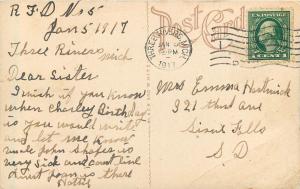 R F D No 5
Jan 5 1917
Three Rivers
Mich
Dear Sister
I wish if you know
when Charley Birthday
is you would write
and let me know
uncle John Shafer is
very sick and cant live
Hattie
Post Card
THREE RIVERS, MICH.
JAN
PM
1917
1
CENT 1
Mrs Emma
921
Sioux Falls
S D